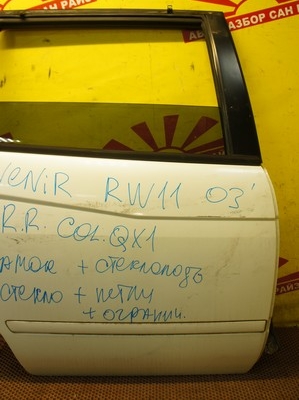 РАЗБОР САН РАЙЗ
АВ
РАЗБОР САН
VENiR RW11 03'
R.R. COL.QX1
АМОК + СТЕКЛОПОДЪ
СТЕКЛО + ПЕТЛИ
+ ОГРАНИЧ.